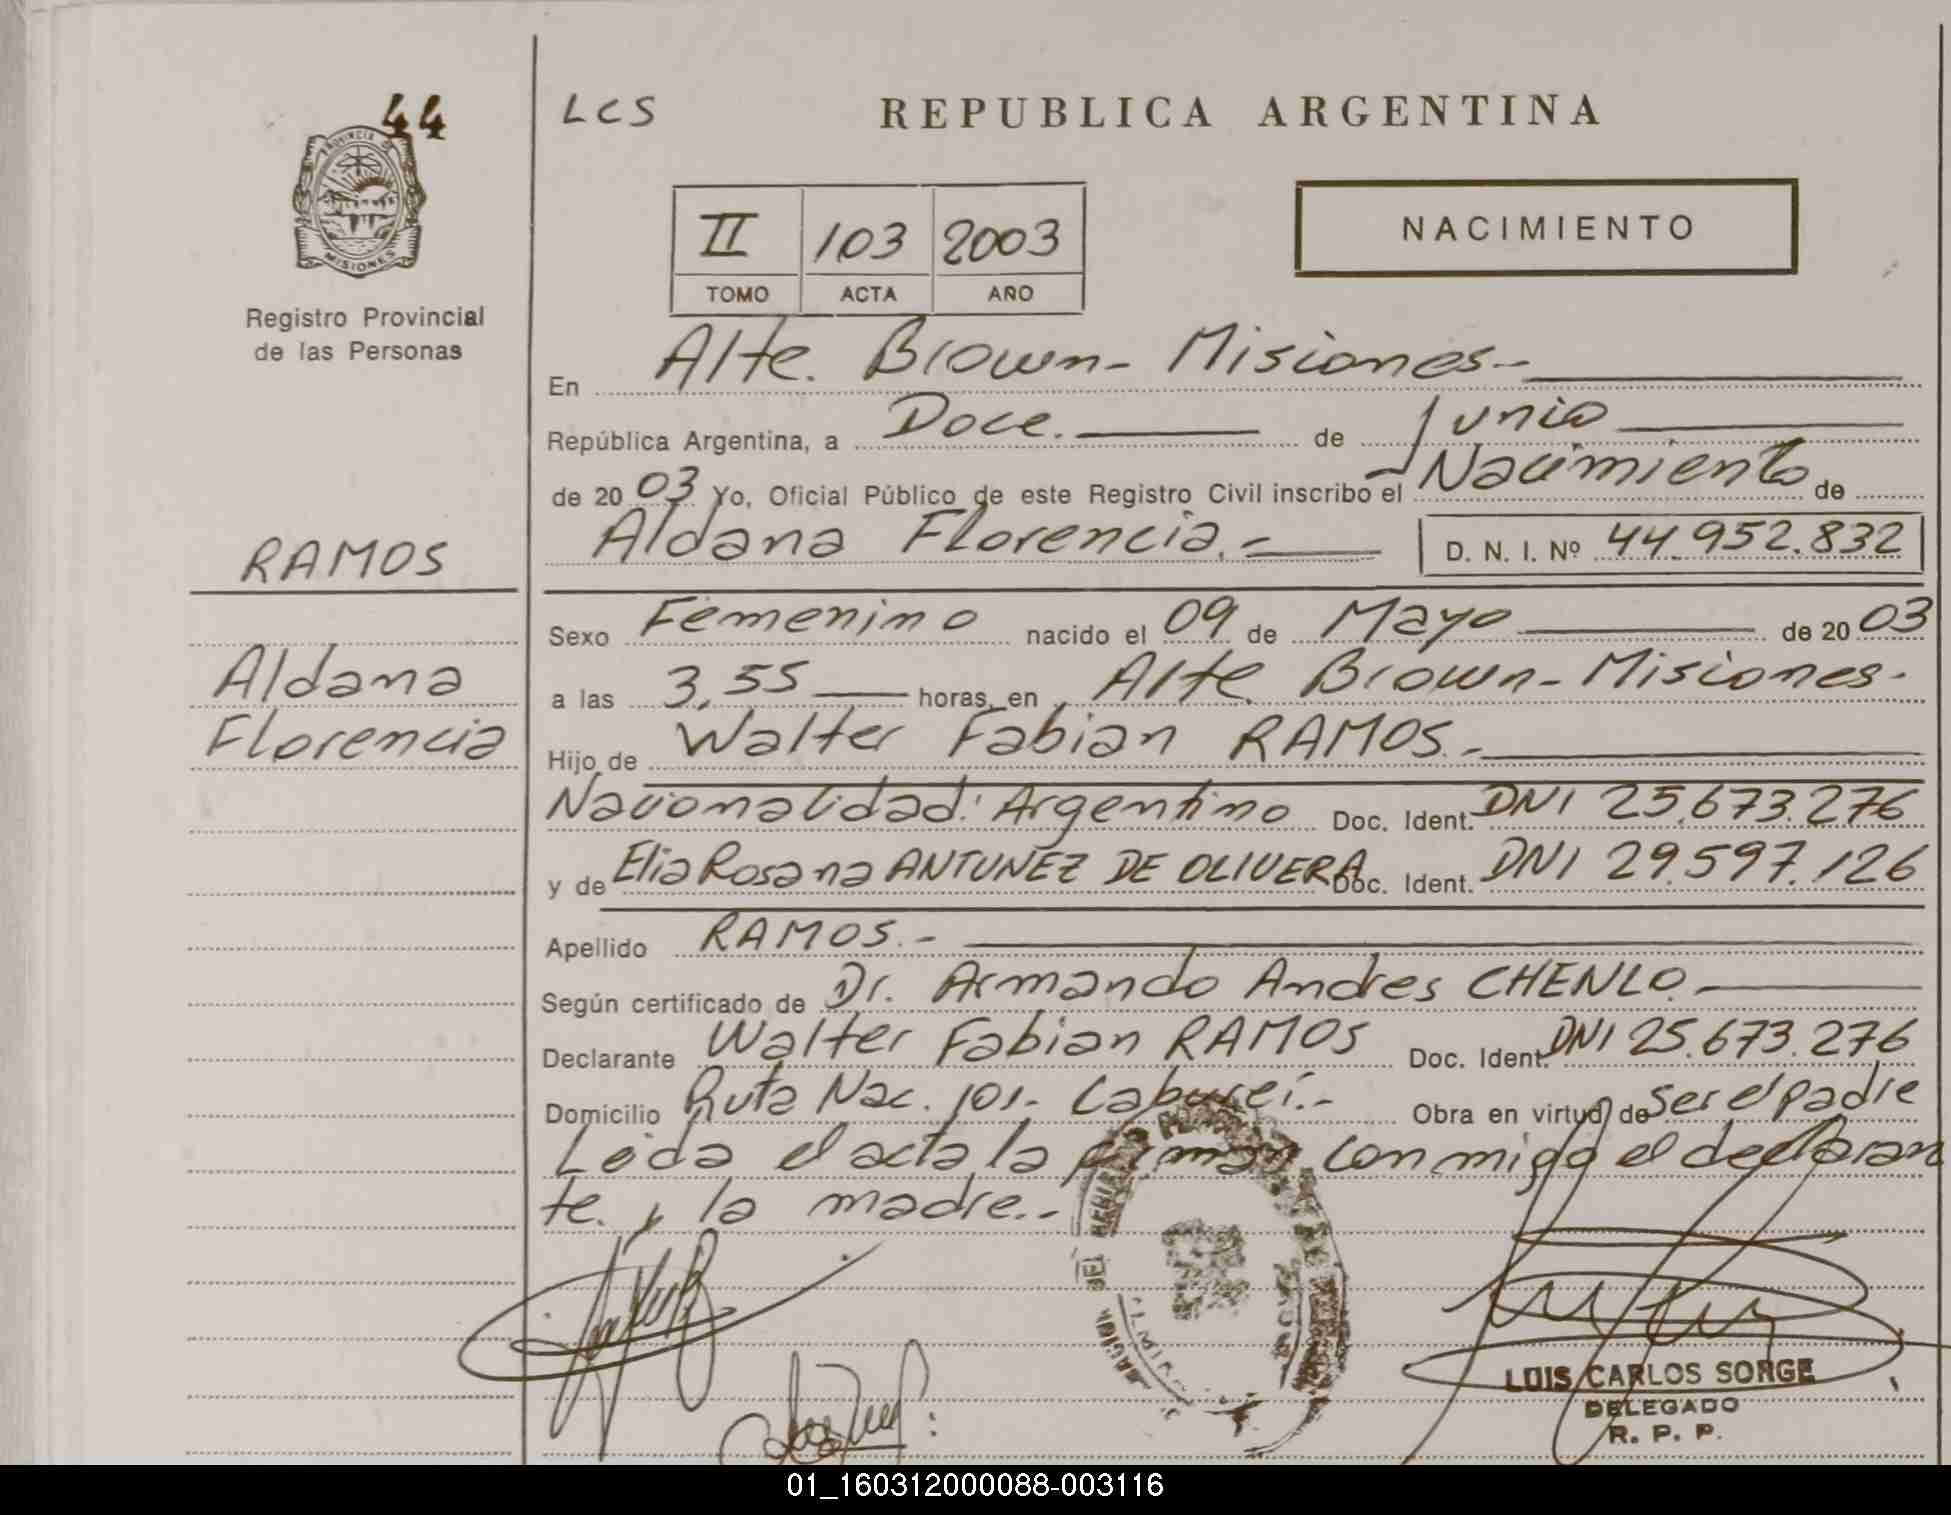 44
PROVINCIA D
MISIONES
Registro Provincial
de las Personas
RAMOS
Aldana
Florencia
LCS
REPUBLICA ARGENTINA
II 103 2003
TOMO ACTA AÑO
NACIMIENTO
En Alte. Brown- Misiones.-
República Argentina, a Doce. de Junio
de 20 03 Yo, Oficial Público de este Registro Civil inscribo el Nacimiento de
Aldana Florencia.- D. N. I. Nº 44.952.832
Sexo Femenino nacido el 09 de Mayo de 20 03
a las 3,55 horas, en Alte. Brown- Misiones.-
Hijo de Walter Fabian RAMOS.-
Nacionalidad: Argentino Doc. Ident. DNI 25.673.276
y de Elia Rosana ANTUNEZ DE OLIVERA Doc. Ident. DNI 29.597.126
Apellido RAMOS.-
Según certificado de Dr. Armando Andres CHENLO.-
Declarante Walter Fabian RAMOS Doc. Ident. DNI 25.673.276
Domicilio Ruta Nac. 101- Caburei.- Obra en virtud de Ser el padre
Leida el acta, la firman conmigo el declaran
te. y la madre.-
DEL
LUIS CARLOS SORGE
DELEGADO
R. P. P.
01_160312000088-003116